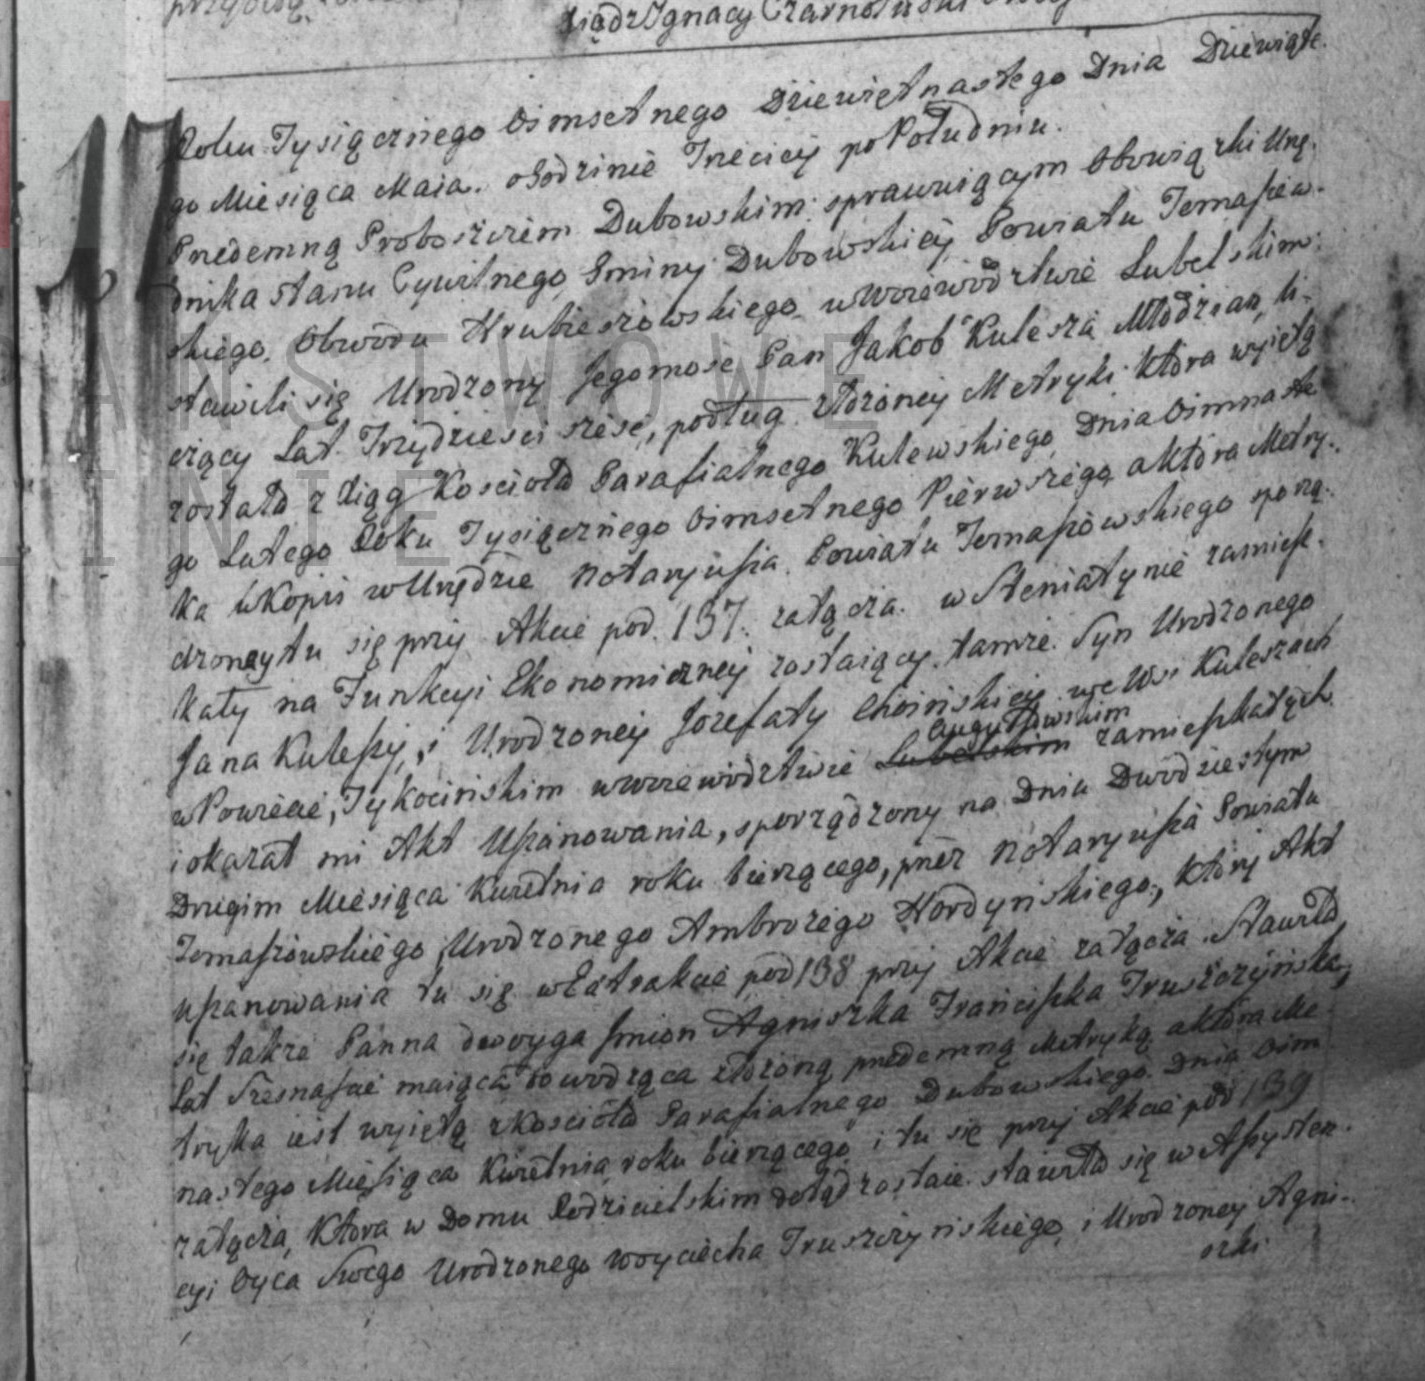 Xiądz Ignacy Czarnołuski
17
Roku Tysiącznego Osmsetnego Dziewiętnastego Dnia Dziewiąte-
go Miesiąca Maia. o Godzinie Trzeciey po Południu.
Przedemną Proboszczem Dubowskim sprawuiącym Obowiązki Urzę-
dnika Stanu Cywilnego Gminy Dubowskiey, Powiatu Tomaszew-
skiego, Obwodu Hrubieszowskiego, w Woiewództwie Lubelskim:
stawili się Urodzony Jegomosc Pan Jakob Kulesza Młodzian, li-
czący Lat. Trzydziesci szesc, podług złożoney Metryki która wyiętą
została z Xiąg Koscioła Parafialnego Kulewskiego, Dnia Osmnaste
go Lutego Roku Tysiącznego Osmsetnego Pierwszego, a która Metry-
ka w Kopii w Urzędzie Notaryusza Powiatu Tomaszowskiego sporzą-
dzoney tu się przy Akcie pod. 137. załącza. w Steniatynie zamiesz-
kały na Funkcyi Ekonomiczney zostaiący, tamże. Syn Urodzonego
Jana Kuleszy, i Urodzoney Jozefaty Choinskiey we Wsi Kuleszach
Augustowskim
w Powiecie, Tykocińskim w Woiewodztwie Lubelskim zamieszkałych
i okazał mi Akt Uszanowania, sporządzony na Dniu Dwudziestym
Drugim Miesiąca Kwietnia roku bierzącego, przez Notaryusza Powiatu
Tomaszowskiego, Urodzonego Ambrożego Hordyńskiego, który Akt
uszanowania tu się w Extrakcie pod 138 przy Akcie załącza. Stawiła
się także Panna dwoyga Imion Agniszka Franciszka Truszczyńska,
Lat Szesnascie maiąca dowodząca złożoną przedemną Metryką, a która Me-
tryka iest wyiętą z Kościoła Parafialnego Dubowskiego Dnia Osm
nastego Miesiąca Kwietnia roku bierzącego i tu się przy Akcie pod 139
załącza, która w Domu Rodzicielskim dotąd zostaie. stawiła się w Assysten-
cyi Oyca Swego Urodzonego Woyciecha Truszczyńskiego, i Urodzoney Agni-
szki